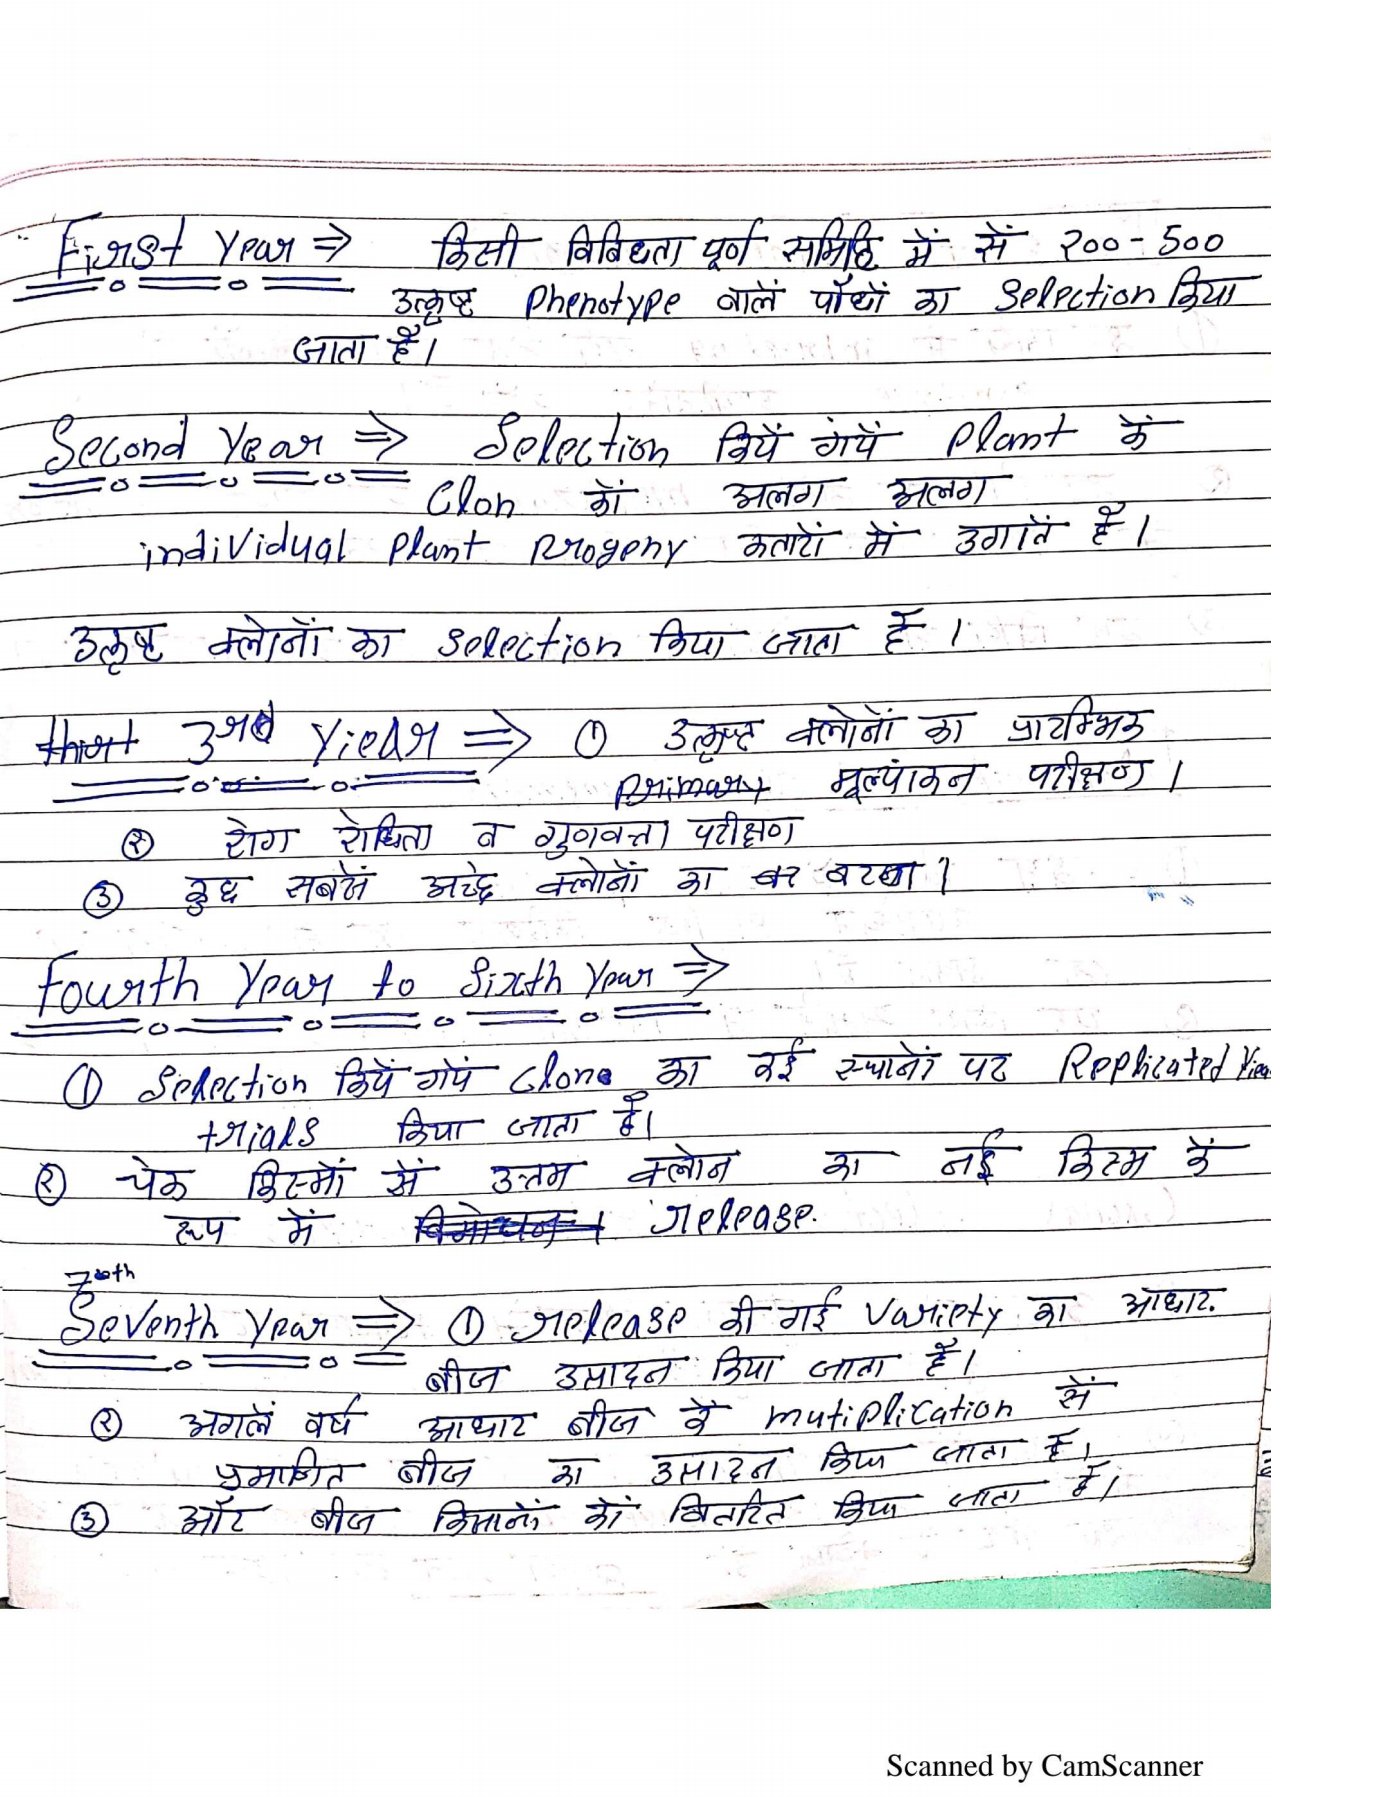 First Year ⇒ किसी विविधता पूर्ण समिष्ठि में सें 200-500
उत्कृष्ट Phenotype वालें पौधों का Selection किया
जाता है।
Second Year ⇒ Selection कियें गयें Plant कें
Clon कों अलग अलग
individual Plant Progeny कतारों में उगातें है।
उत्कृष्ट क्लोनों का selection किया जाता है ।
3rd Yiear ⇒ ① उत्कृष्ट क्लोनों का प्रारम्भिक
primary मूल्यांकन परीक्षण ।
② रोग रोधिता व गुणवत्ता परीक्षण
③ कुछ सबसें अच्छे क्लोनों का
Fourth Year to Sixth Year ⇒
① Selection कियें गयें Clone का कई स्थानों पर Replicated
trials किया जाता है।
② चेक किस्मों सें उत्तम क्लोन का नई किस्म कें
रूप में release.
7th
Seventh Year ⇒ ① release की गई Variety का आधार
बीज उत्पादन किया जाता है।
② अगलें वर्ष आधार बीज कें mutiplication सें
प्रमाणित बीज का उत्पादन किया जाता है।
③ और बीज किसानों कों वितरित किया जाता है।
Scanned by CamScanner